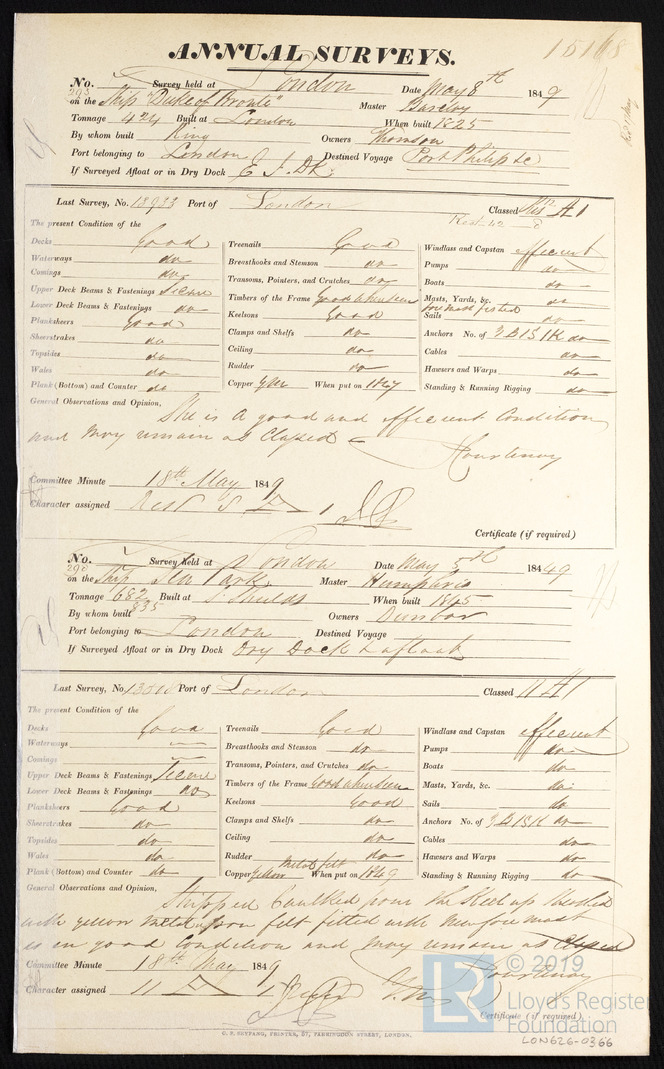 ANNUAL SURVEYS.
15168
No. 293 Survey held at London Date May 8th 1849
on the Ship "Duke of Bronte" Master Barclay
Tonnage 424 Built at London When built 1825
By whom built King Owners Thomson
Port belonging to London Destined Voyage Port Philip &c
If Surveyed Afloat or in Dry Dock E I. Dk
Last Survey, No. 18933 Port of London Classed A1
Rest. 42 - 8
The present Condition of the
Decks Good
Waterways do
Comings do
Upper Deck Beams & Fastenings Secure
Lower Deck Beams & Fastenings do
Planksheers Good
Sheerstrakes do
Topsides do
Wales do
Plank (Bottom) and Counter do
Treenails Good
Breasthooks and Stemson do
Transoms, Pointers, and Crutches do
Timbers of the Frame Good where seen
Keelsons Good
Clamps and Shelfs do
Ceiling do
Rudder do
Copper When put on 1847
Windlass and Capstan efficient
Pumps do
Boats do
Masts, Yards, &c. do
fore mast fished
Sails do
Anchors No. of 3 B 1 S 1 K do
Cables do
Hawsers and Warps do
Standing & Running Rigging do
General Observations and Opinion,
She is a good and efficient Condition
and may remain as Classed
Courtenay
Committee Minute 18th May 1849
Character assigned Rest 1
Certificate (if required)
No. 290 Survey held at London Date May 5th 18449
on the Ship Master Humphris
Tonnage 682 835 Built at S. Shields When built 1845
By whom built Owners Dunbar
Port belonging to London Destined Voyage
If Surveyed Afloat or in Dry Dock Dry Dock
Last Survey, No. Port of London Classed A1
The present Condition of the
Decks Good
Waterways
Comings
Upper Deck Beams & Fastenings Secure
Lower Deck Beams & Fastenings do
Planksheers Good
Sheerstrakes do
Topsides do
Wales do
Plank (Bottom) and Counter do
Treenails Good
Breasthooks and Stemson do
Transoms, Pointers, and Crutches do
Timbers of the Frame Good where seen
Keelsons Good
Clamps and Shelfs do
Ceiling do
Rudder do
Copper Yellow Metal & felt When put on 1849
Windlass and Capstan efficient
Pumps do
Boats do
Masts, Yards, &c. do
Sails do
Anchors No. of 3 B 1 S 1 K do
Cables do
Hawsers and Warps do
Standing & Running Rigging do
General Observations and Opinion,
Stripped Caulked from the Keel up Sheathed
with yellow metal upon felt fitted with New fore mast
is in good Condition and may remain as Classed
Courtenay
Committee Minute 18th May 1849
Character assigned 11 A 1
Certificate (if required)
C. F. SEYFANG, PRINTER, 57, FARRINGDON STREET, LONDON.
LR © 2019
Lloyd's Register
Foundation
LON626-0366